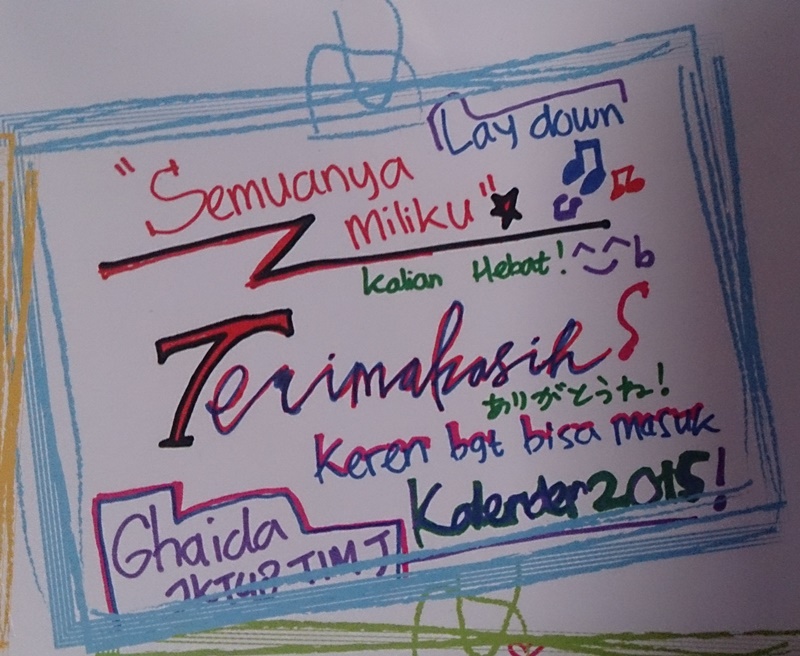 Lay down
"Semuanya
Miliku"
Kalian Hebat! ^^b
Terimakasih
ありがとうね!
Keren bgt bisa masuk
Kalender 2015!
Ghaida
JKT48 TIM J